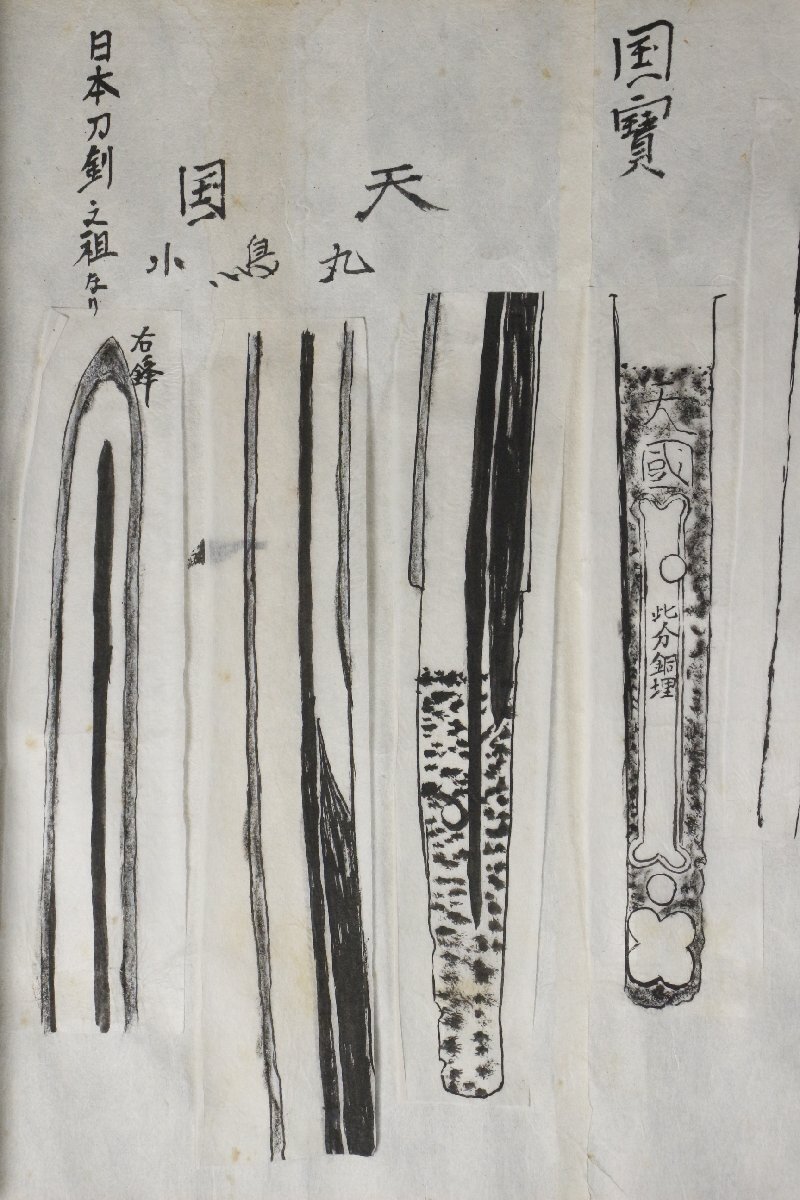 国寶
天国
小烏丸
日本刀釗之祖なり
天國
此分銅埋
右鋒